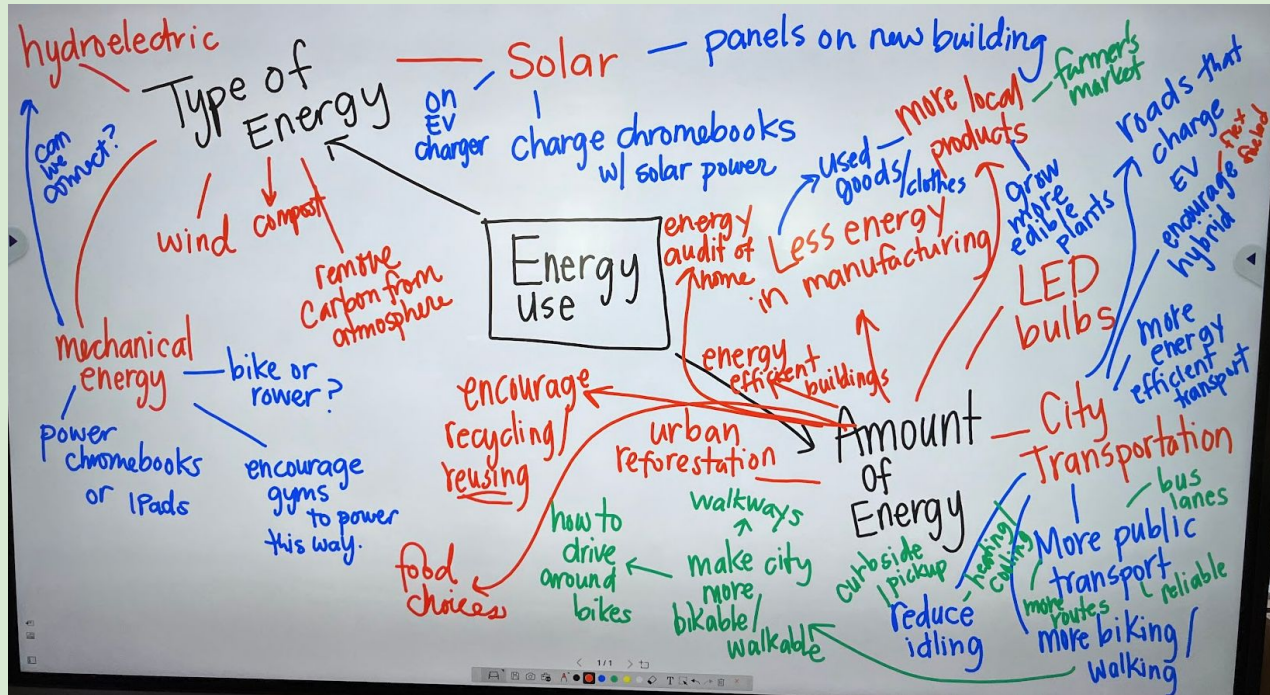 hydroelectric
Type of
Energy
Solar
panels on new building
on
EV
charger
charge chromebooks
w/ solar power
can
we
connect?
wind
compost
remove
carbon from
atmosphere
mechanical
energy
bike or
rower?
power
chromebooks
or IPads
encourage
gyms
to power
this way.
Energy
use
energy
audit of
home
Less energy
in manufacturing
used
goods/clothes
more local
products
farmer's
market
grow
more
edible
plants
LED
bulbs
roads that
charge
EV
encourage
hybrid
flex
fueled
more
energy
efficient
transport
energy
efficient
buildings
encourage
recycling/
reusing
urban
reforestation
food
choices
Amount
of
Energy
City
Transportation
bus
lanes
More public
transport
reliable
more
routes
heating
cooling
curbside
pickup
reduce
idling
more biking/
walking
walkways
make city
more
bikable/
walkable
how to
drive
around
bikes
1/1